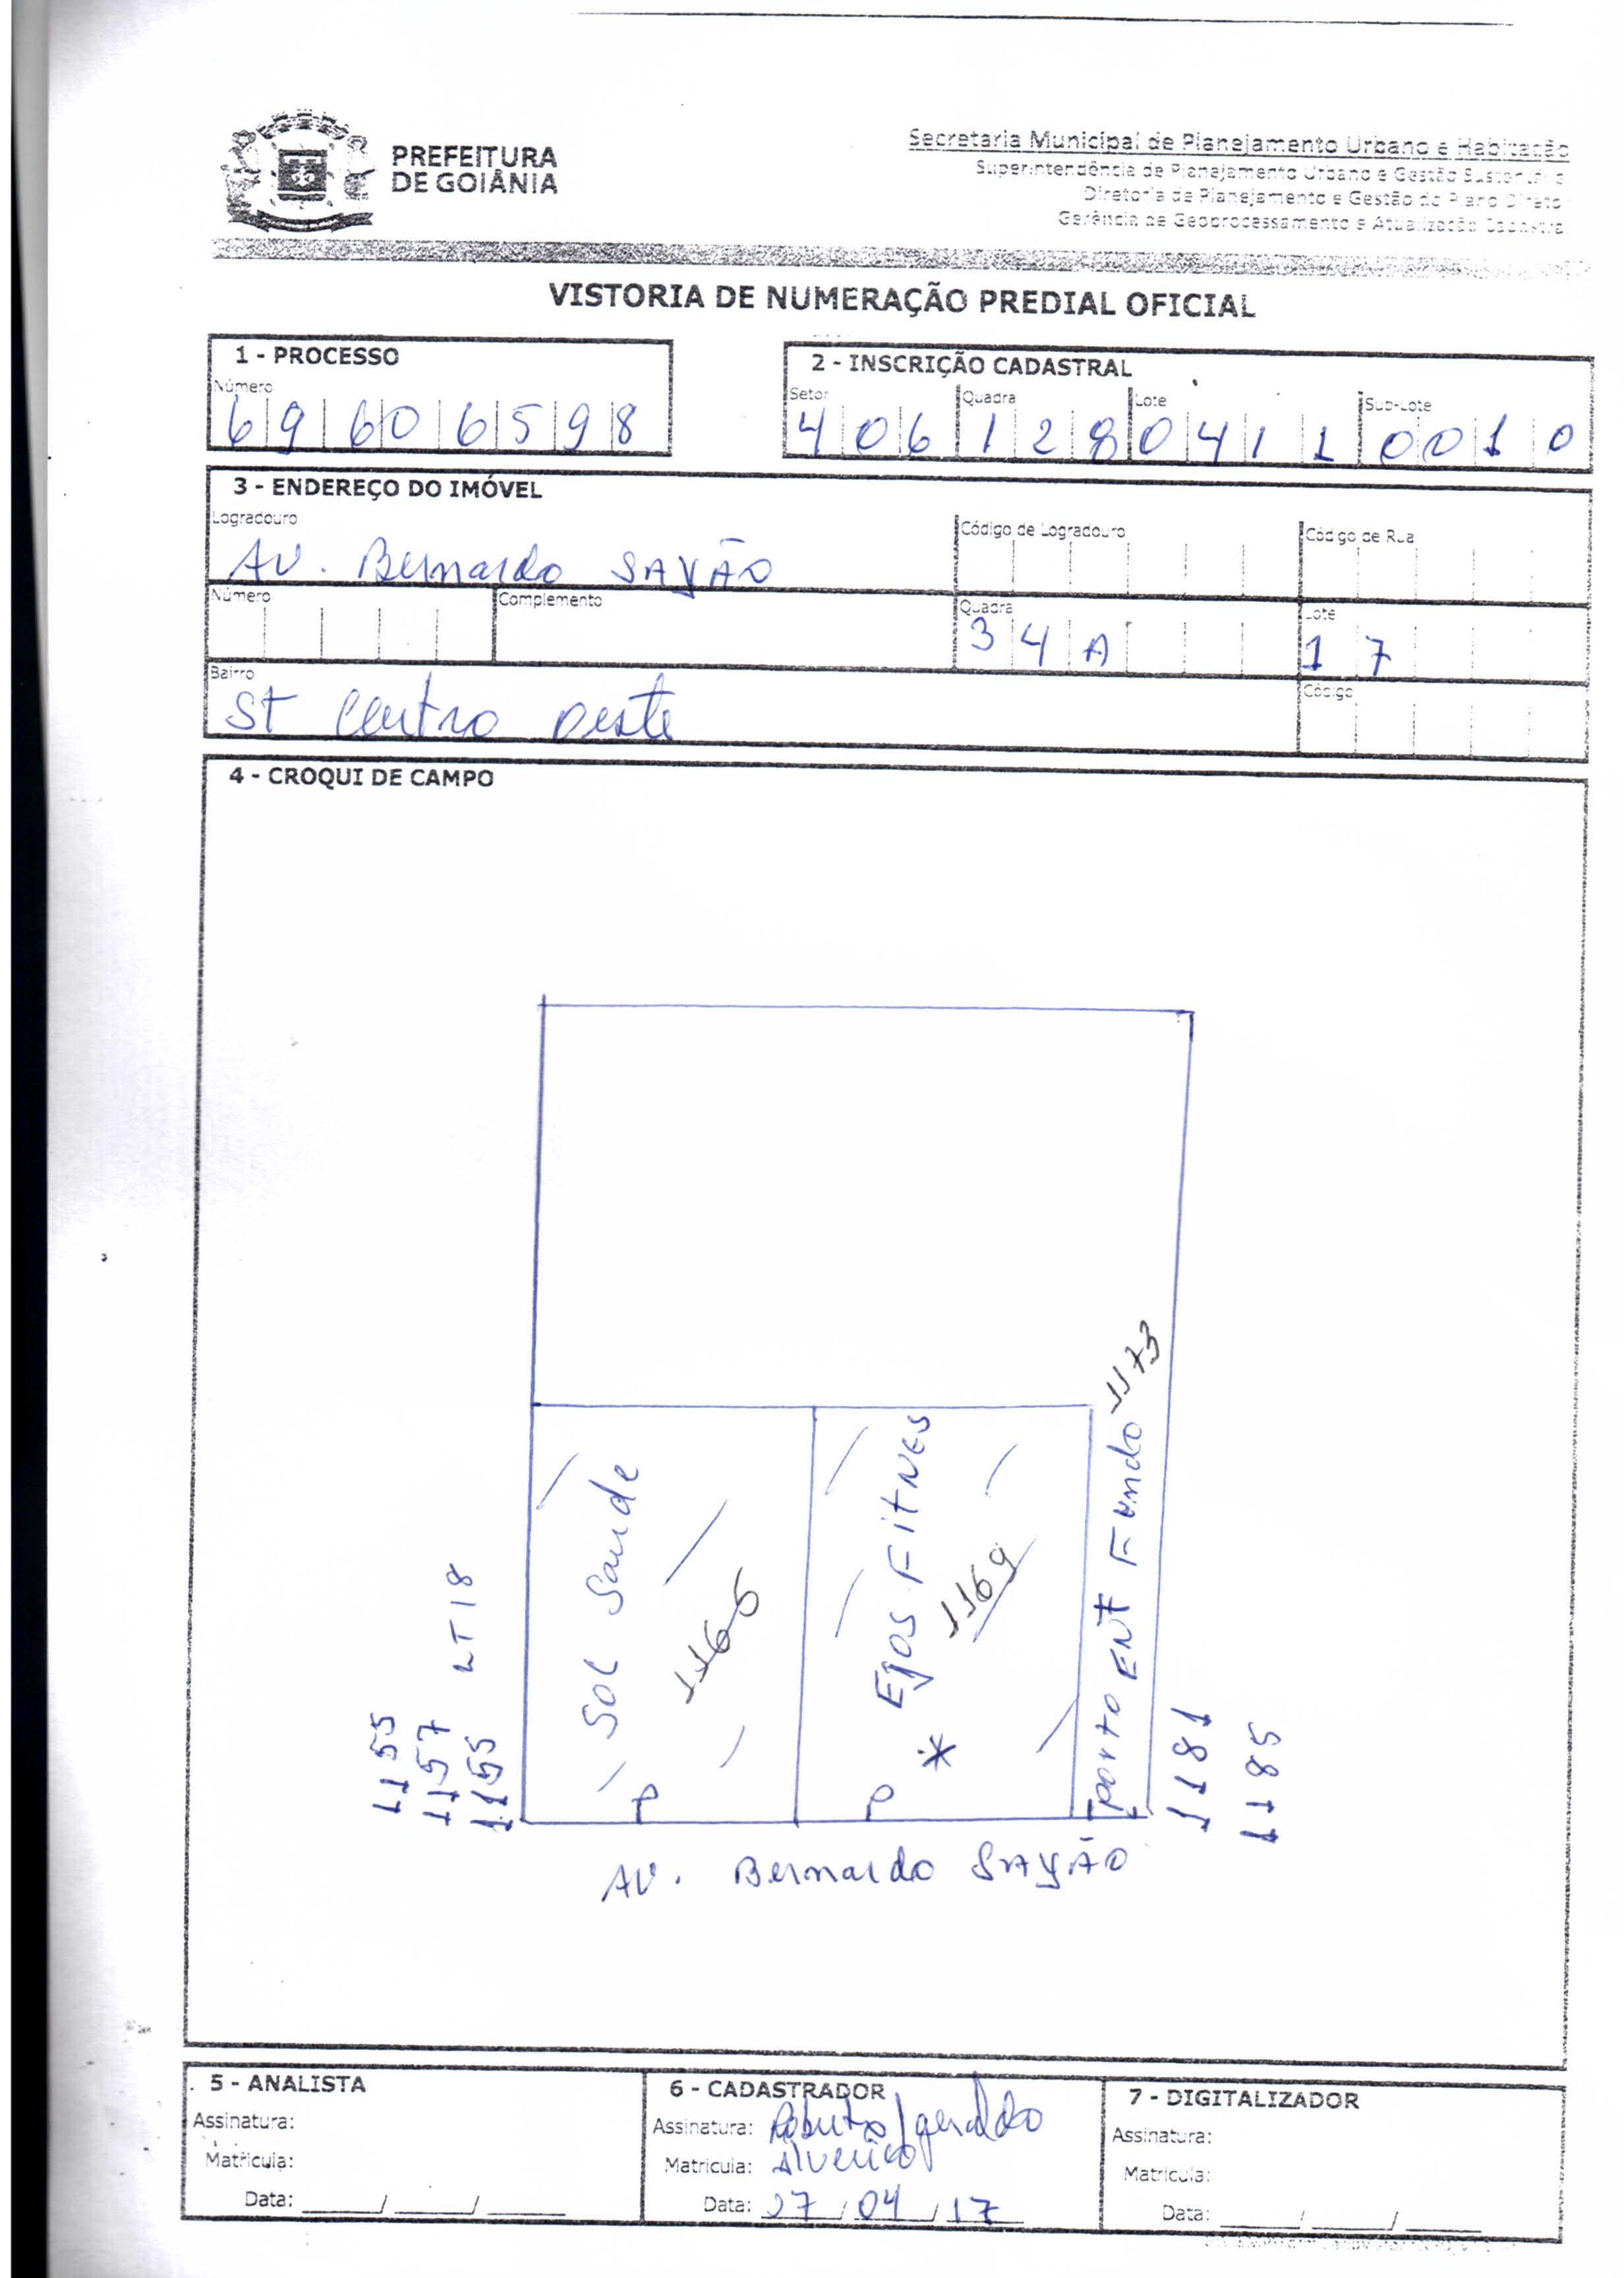 PREFEITURA
DE GOIÂNIA
Secretaria Municipal de Planejamento Urbano e Habitação
Superintendência de Planejamento Urbano e Gestão Sustentável
Diretoria de Planejamento e Gestão do Plano Diretor
Gerência de Geoprocessamento e Atualização Cadastral
VISTORIA DE NUMERAÇÃO PREDIAL OFICIAL
1 - PROCESSO
Número
69606598
2 - INSCRIÇÃO CADASTRAL
Setor Quadra Lote Sub-Lote
406 128 0411 0010
3 - ENDEREÇO DO IMÓVEL
Logradouro Código de Logradouro Código de Rua
AV. Bernardo SAYÃO
Número Complemento Quadra Lote
34A 17
Bairro Código
St Centro oeste
4 - CROQUI DE CAMPO
1155
1157
1155
LT18
Sol Saude
1165
P
Ejos Fitnes
1169
*
P
porto ENT Fundo 1173
1181
1185
AV. Bernardo SAYÃO
5 - ANALISTA
Assinatura:
Matrícula:
Data: ____/____/____
6 - CADASTRADOR
Assinatura: Roberto/geraldo
Matrícula:
Data: 27/04/17
7 - DIGITALIZADOR
Assinatura:
Matrícula:
Data: ____/____/____